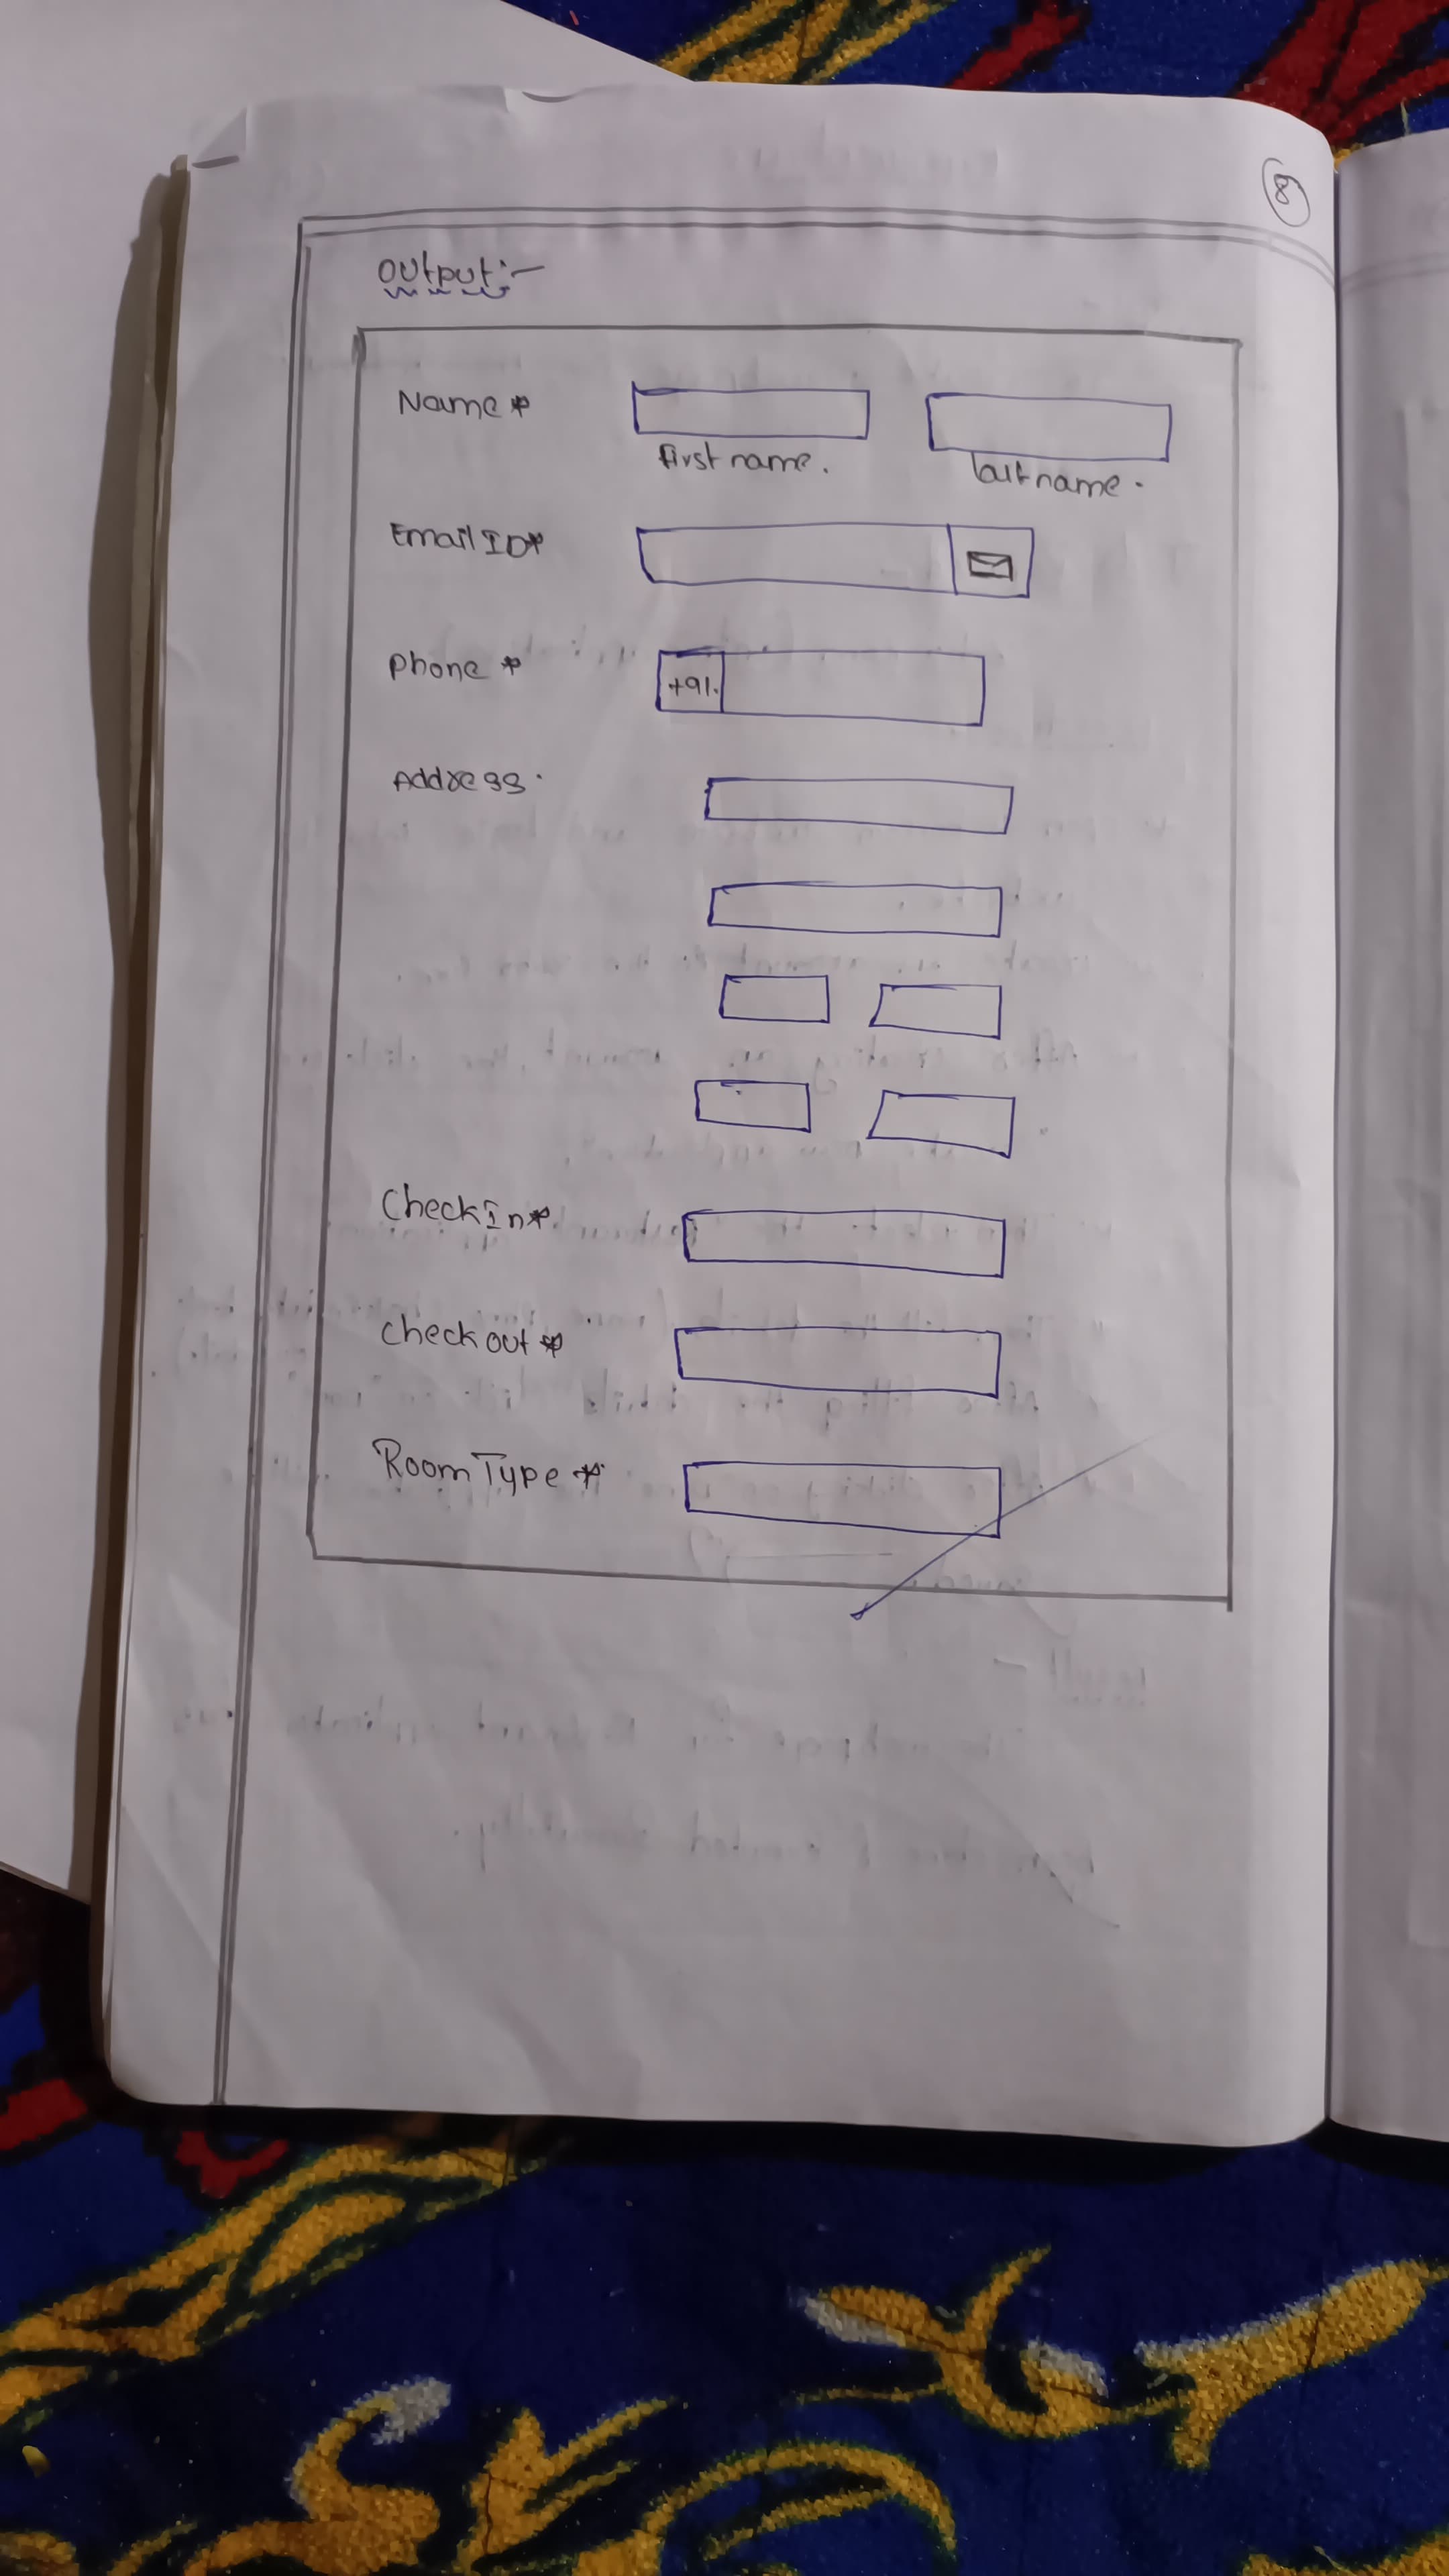 8
output:-
Name *
first name.
last name.
Email ID*
Phone *
+91.
Address.
Check In*
Check out *
Room Type *